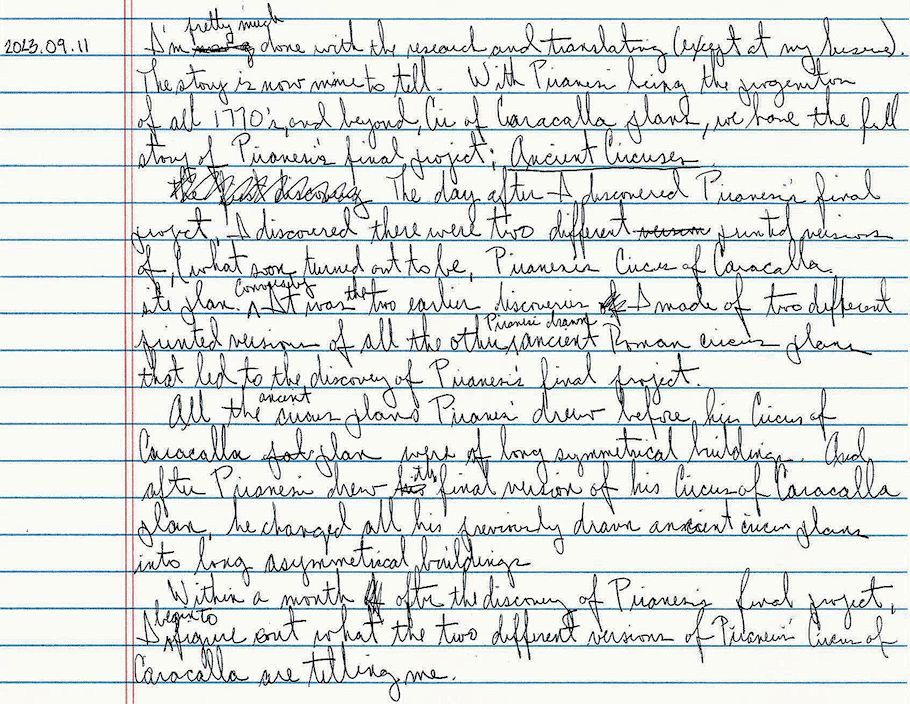 2023.09.11
pretty much
I'm done with the research and translating (except at my leisure).
The story is now mine to tell. With Piranesi being the progenitor
of all 1770's, and beyond, Cir of Caracalla plans, we have the full
story of Piranesi's final project; Ancient Circuses.
the first discovery The day after I discovered Piranesi's final
project, I discovered there were two different version printed versions
of, (what soon turned out to be, Piranesi's Circus of Caracalla.
site plan. Conversely It was the two earlier discoveries I made of two different
Piranesi drawn
printed versions of all the other, ancient Roman circus plans
that led to the discovery of Piranesi's final project.
All the ancient circus plans Piranesi drew before his Circus of
Caracalla plan were of long symmetrical buildings. And
after Piranesi drew his the final version of his Circus of Caracalla
plan, he changed all his previously drawn ancient circus plans
into long asymmetrical buildings
Within a month after the discovery of Piranesi's final project,
I begin to figure out what the two different versions of Piranesi's Circus of
Caracalla are telling me.